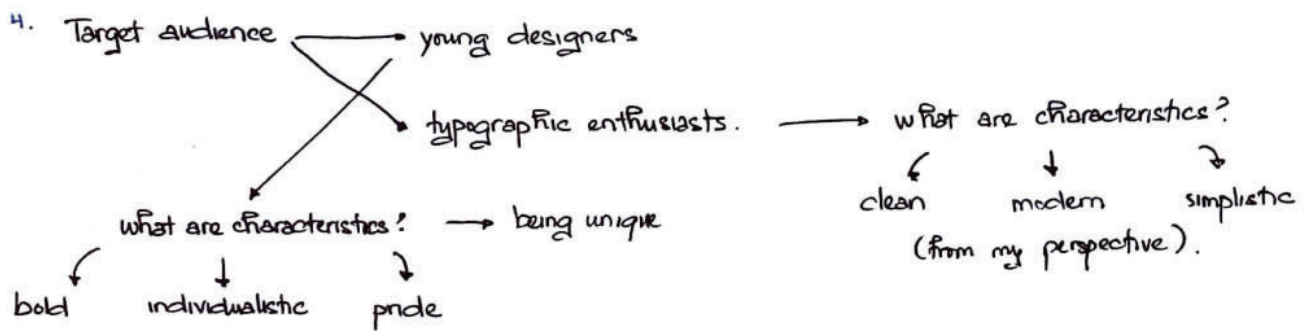 4. Target audience → young designers
typographic enthusiasts. → what are characteristics?
clean modern simplistic
(from my perspective).
what are characteristics? → being unique
bold individualistic pride